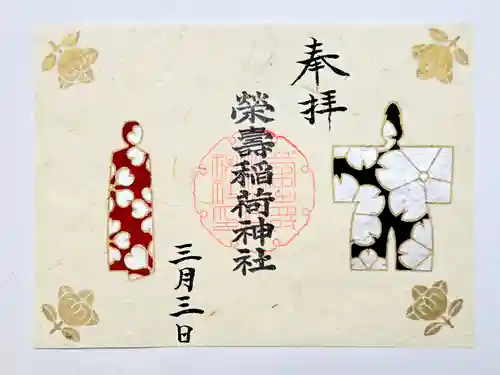 奉拝
榮壽稲荷神社
三月三日